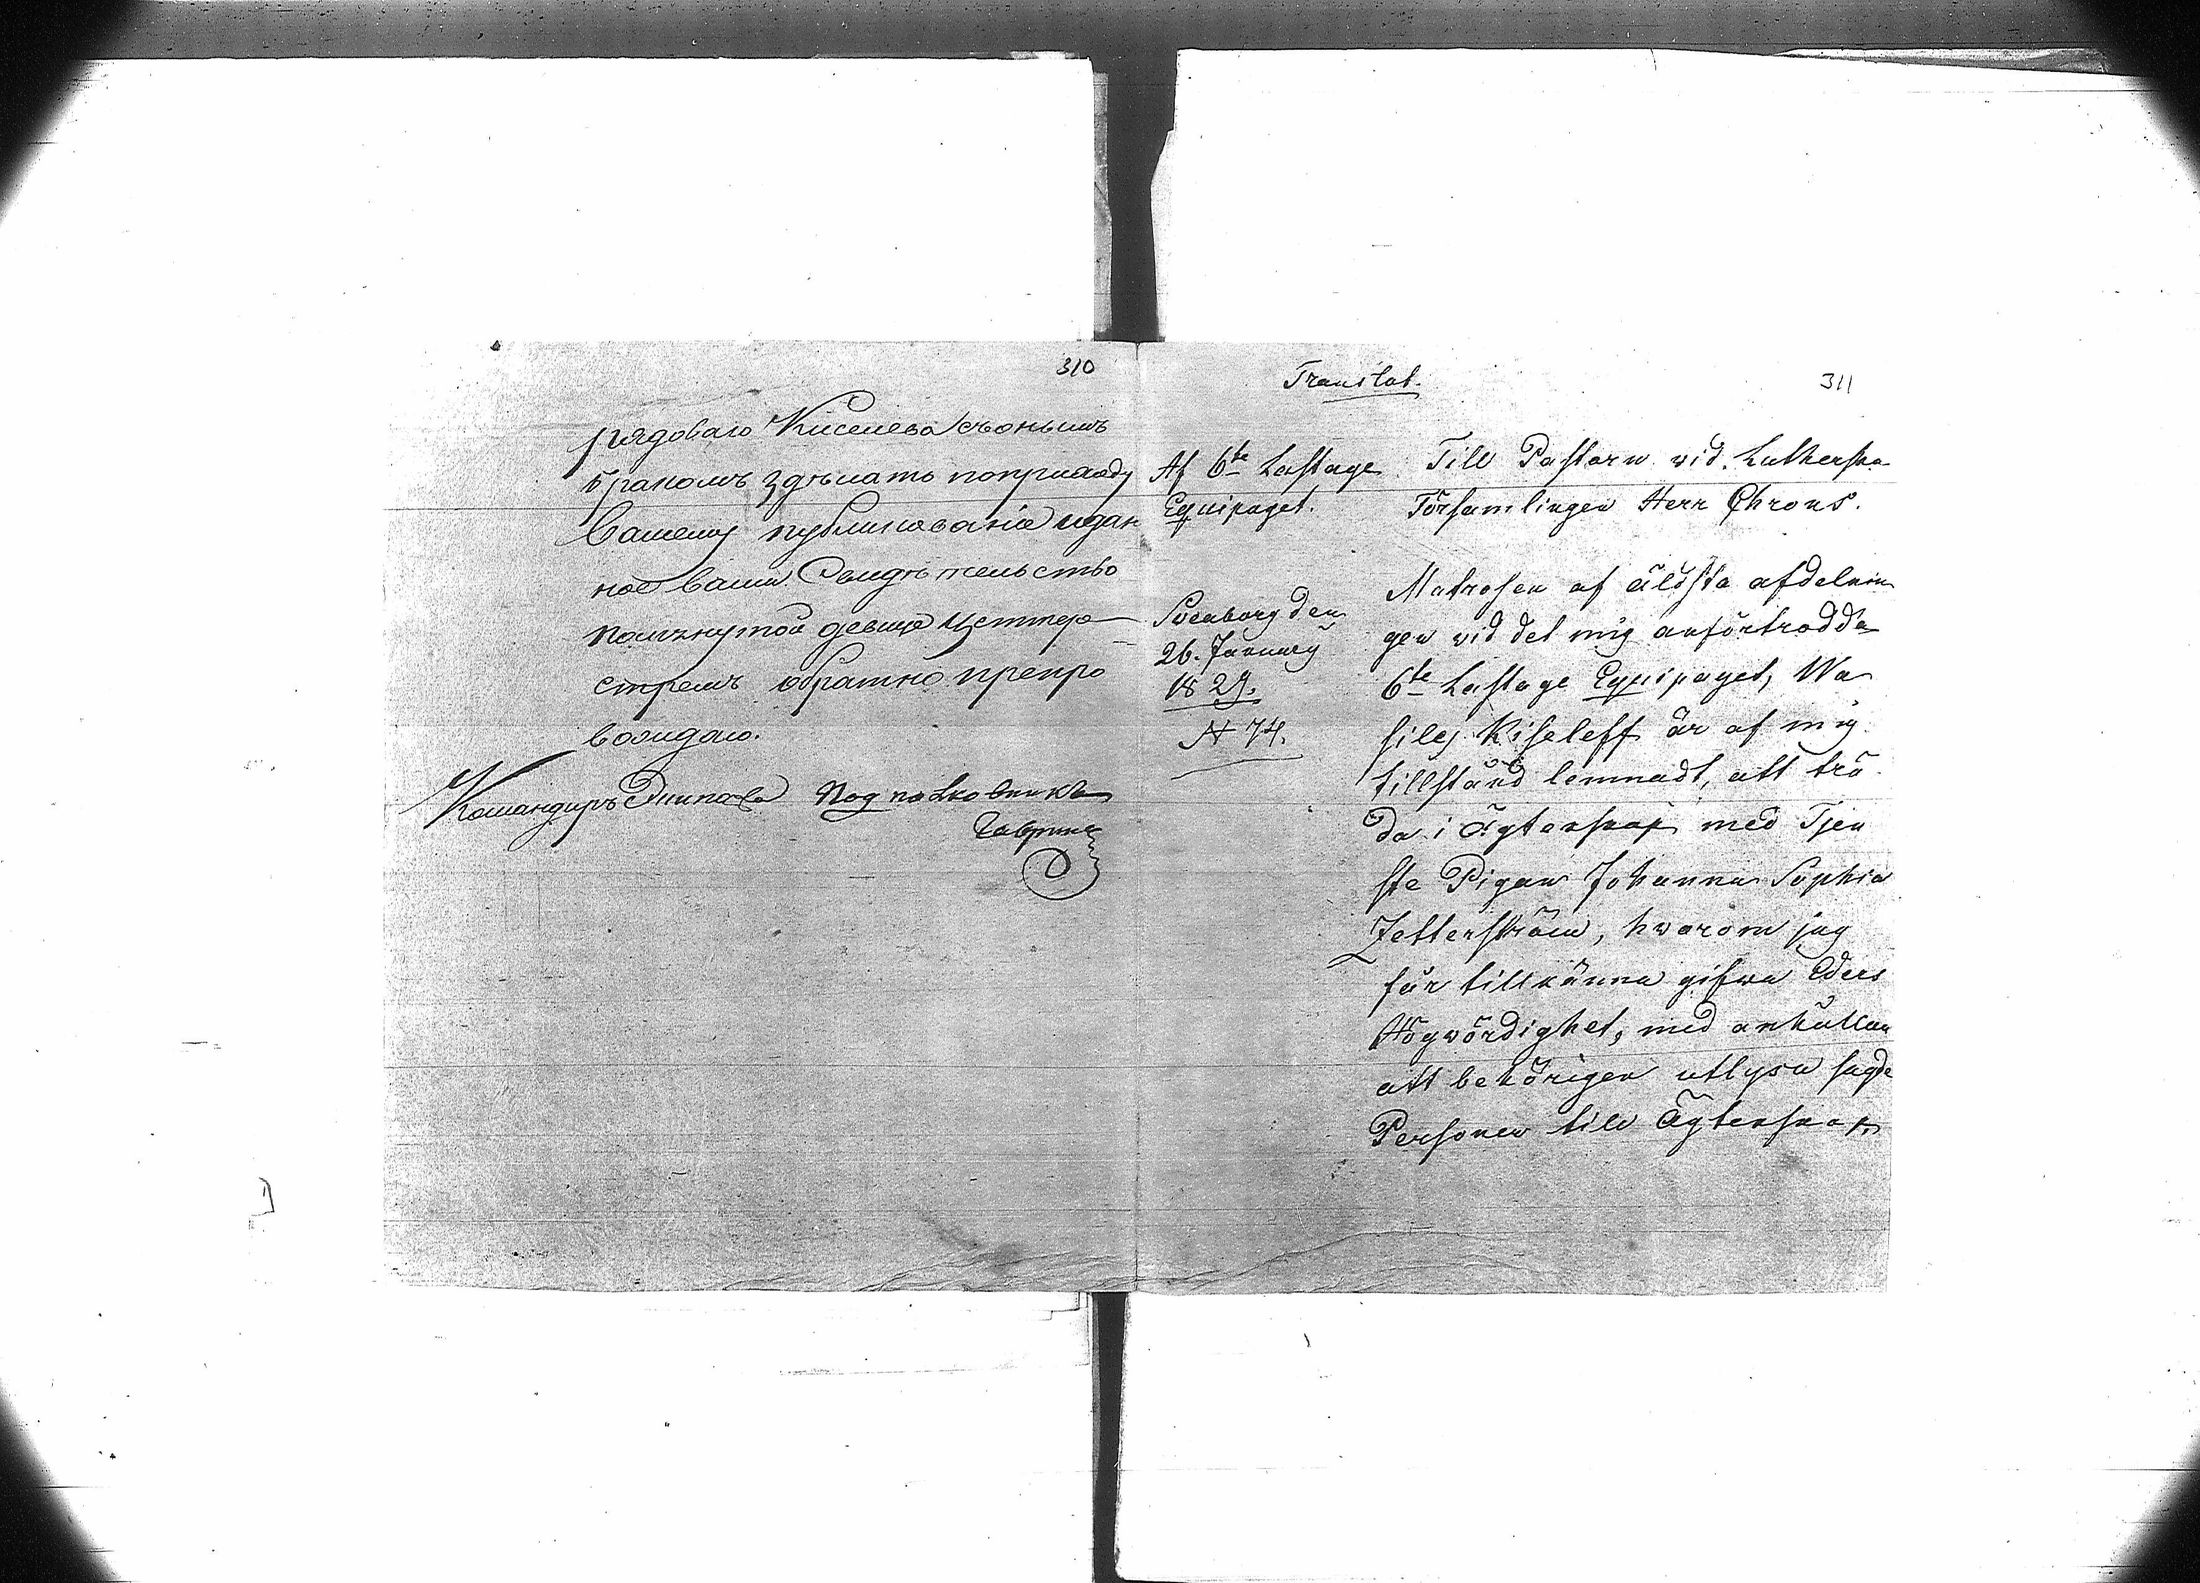 310
рядоваго Киселева съонымъ
бракомъ здѣлать поприходу
Вашему публикованіе идан
ное вами Свидѣтельство
помянутой девице Цеттер
стремъ обратно препро
вождаю.
Командиръ Экипажа Подполковникъ
Translat.
311
Af 6te Lastage
Equipaget.
Sveaborg den
26. January
1829.
N 74.
Till Pastorn vid Lutherska
Församlingen Herr Chrons.
Matrosen af äldsta afdelnin
gen vid det mig anförtrodda
6te Lastage Equipaget, Wa
silej Kiseleff är af mig
tillstånd lemnadt, att trä
da i ägtenskap med Tjen
ste Pigan Johanna Sophia
Zetterström, hvarom jag
får tillkänna gifva Eders
Högvördighet, med anhållan
att behörigen utlysa sagde
Personer till Ägtenskap